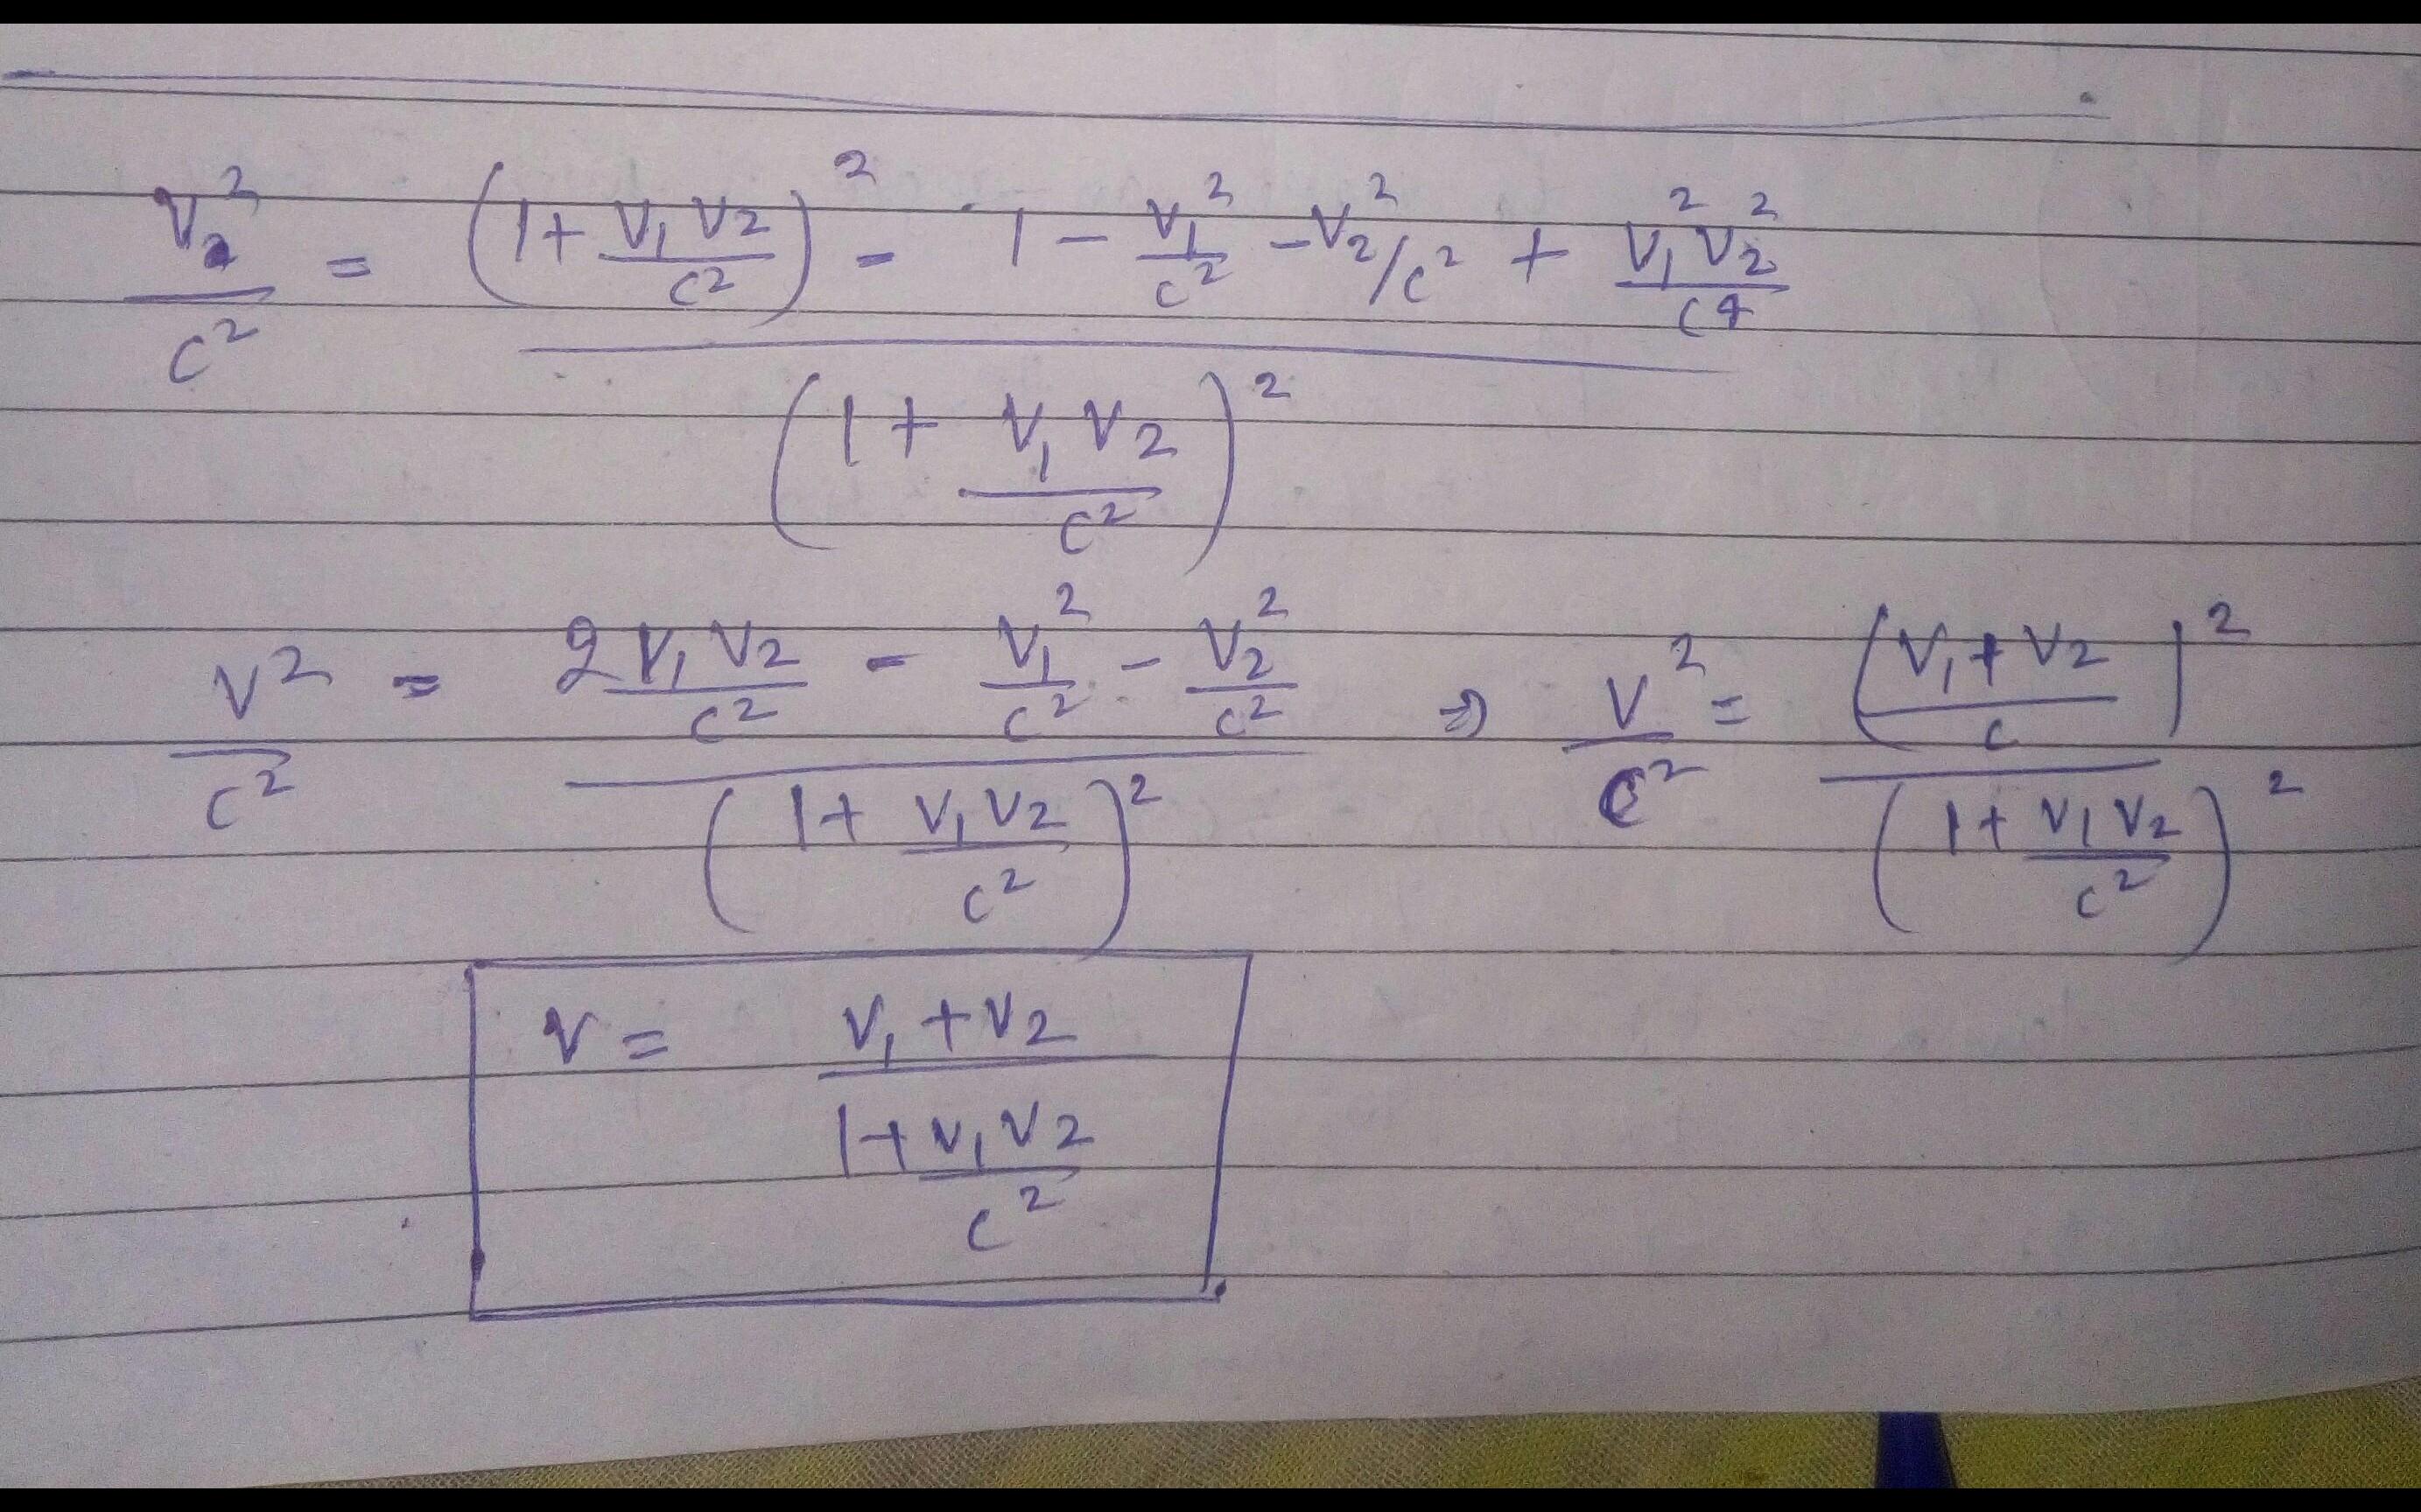 V₂²/c² = ((1 + V₁V₂/c²)² - 1 - V₁²/c² - V₂²/c² + V₁²V₂²/c⁴) / (1 + V₁V₂/c²)²
V²/c² = (2V₁V₂/c² - V₁²/c² - V₂²/c²) / (1 + V₁V₂/c²)² ⇒ V²/c² = ((V₁ + V₂)/c)² / (1 + V₁V₂/c²)²
V = (V₁ + V₂) / (1 + V₁V₂/c²)